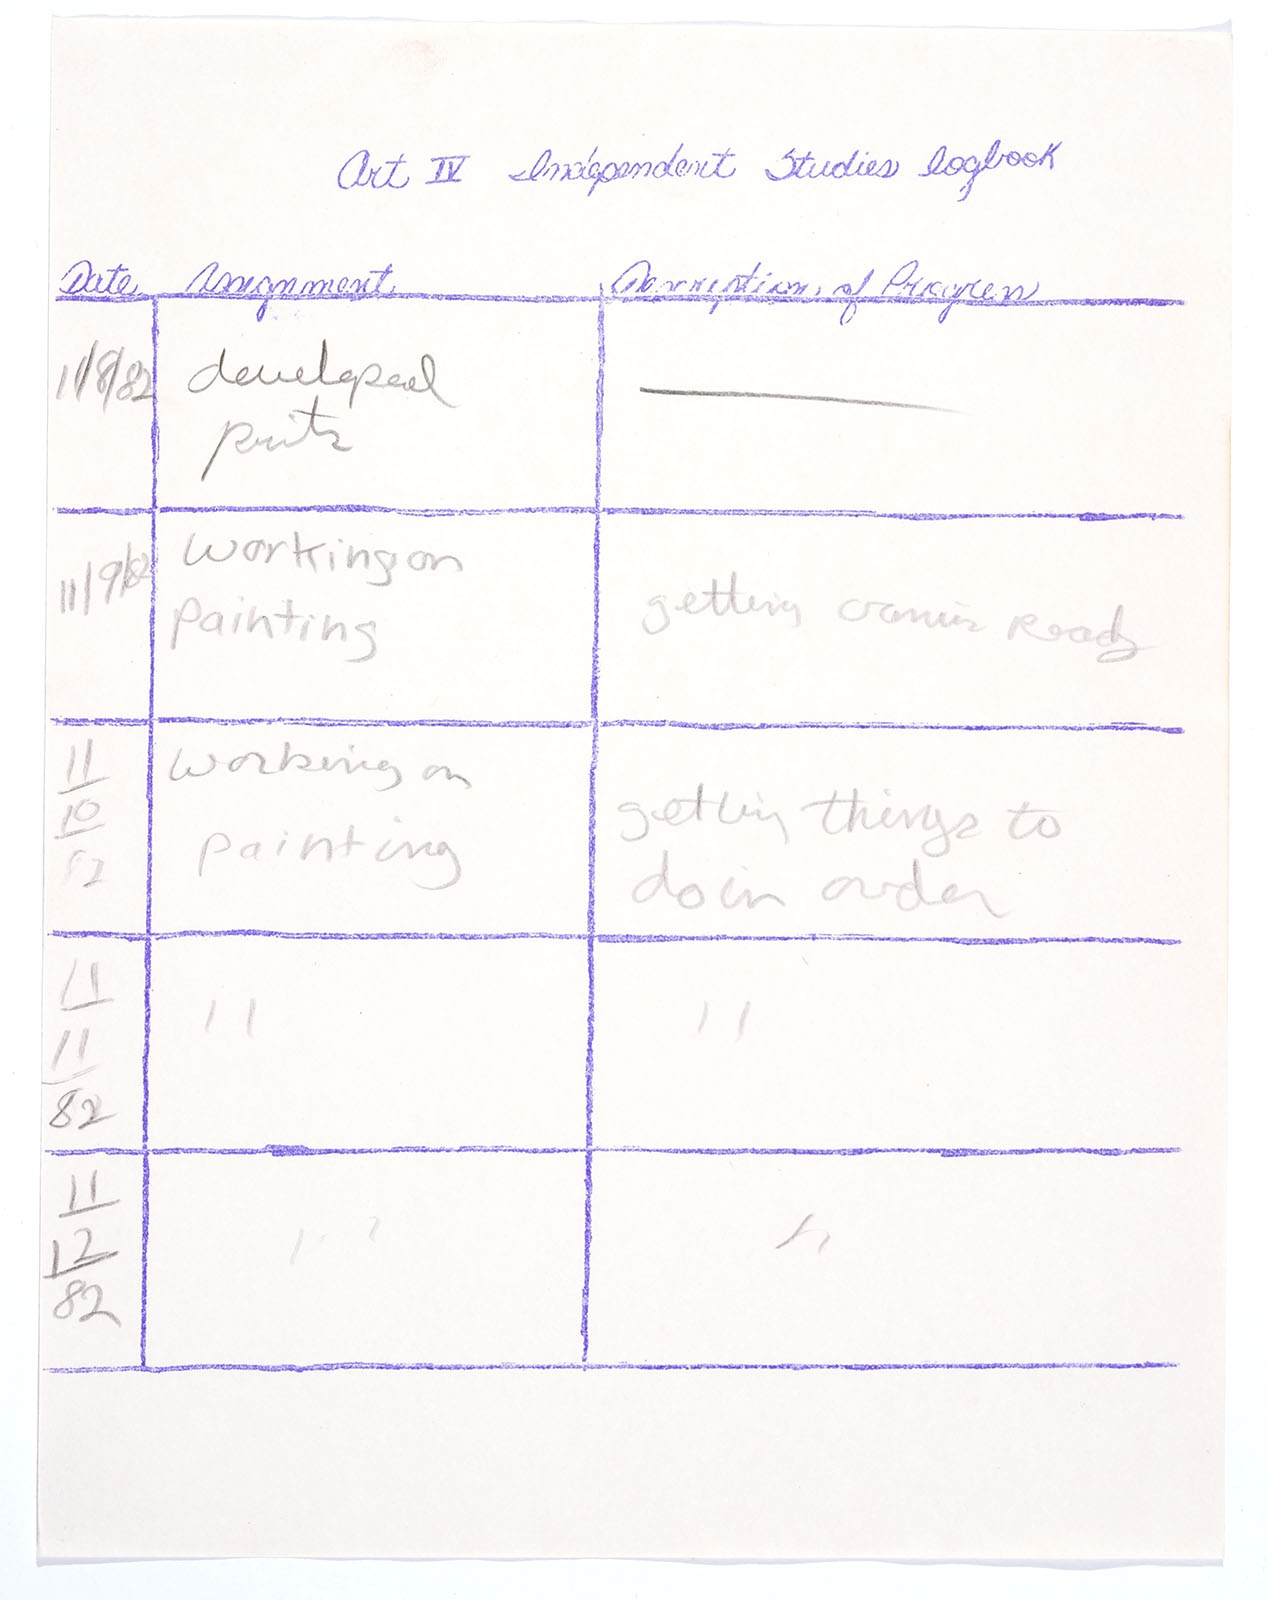 Art IV Independent Studies logbook
Date Assignment Description of Progress
11/8/82 developed
prints
11/9/82 working on
painting getting canvis Ready
11
10
82
working on
painting
getting things to
do in order
11
11
82
" "
11
12
82
" "